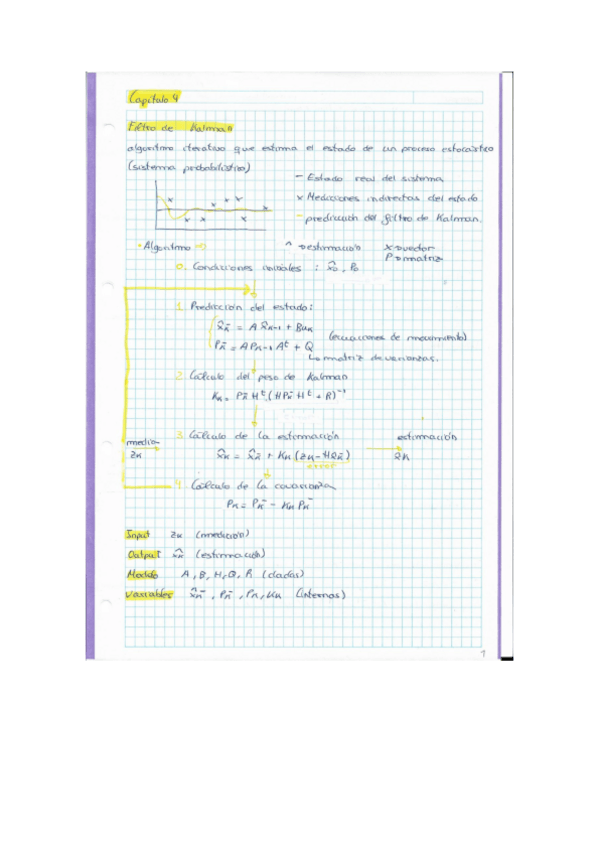 Capítulo 4
Filtro de Kalman
algoritmo iterativo que estima el estado de un proceso estocástico
(sistema probabilístico)
— Estado real del sistema
x Mediciones indirectas del estado
— predicción del filtro de Kalman.
• Algoritmo ⇒
^ → estimación
x → vector
P → matriz
0. Condiciones iniciales : x̂₀, P₀
1. Predicción del estado:
x̂ₖ⁻ = A x̂ₖ₋₁ + Buₖ
Pₖ⁻ = A Pₖ₋₁ Aᵗ + Q
(ecuaciones de movimiento)
↳ matriz de varianzas.
2. Cálculo del peso de Kalman
Kₖ = Pₖ⁻ Hᵗ (H Pₖ⁻ Hᵗ + R)⁻¹
3. Cálculo de la estimación
medición
zₖ
estimación
x̂ₖ
x̂ₖ = x̂ₖ⁻ + Kₖ (zₖ − H x̂ₖ⁻)
error
4. Cálculo de la covarianza
Pₖ = Pₖ⁻ − Kₖ Pₖ⁻
Input zₖ (medición)
Output x̂ₖ (estimación)
Modelo A, B, H, Q, R (dadas)
Variables x̂ₖ⁻, Pₖ⁻, Pₖ, Kₖ (internas)
1